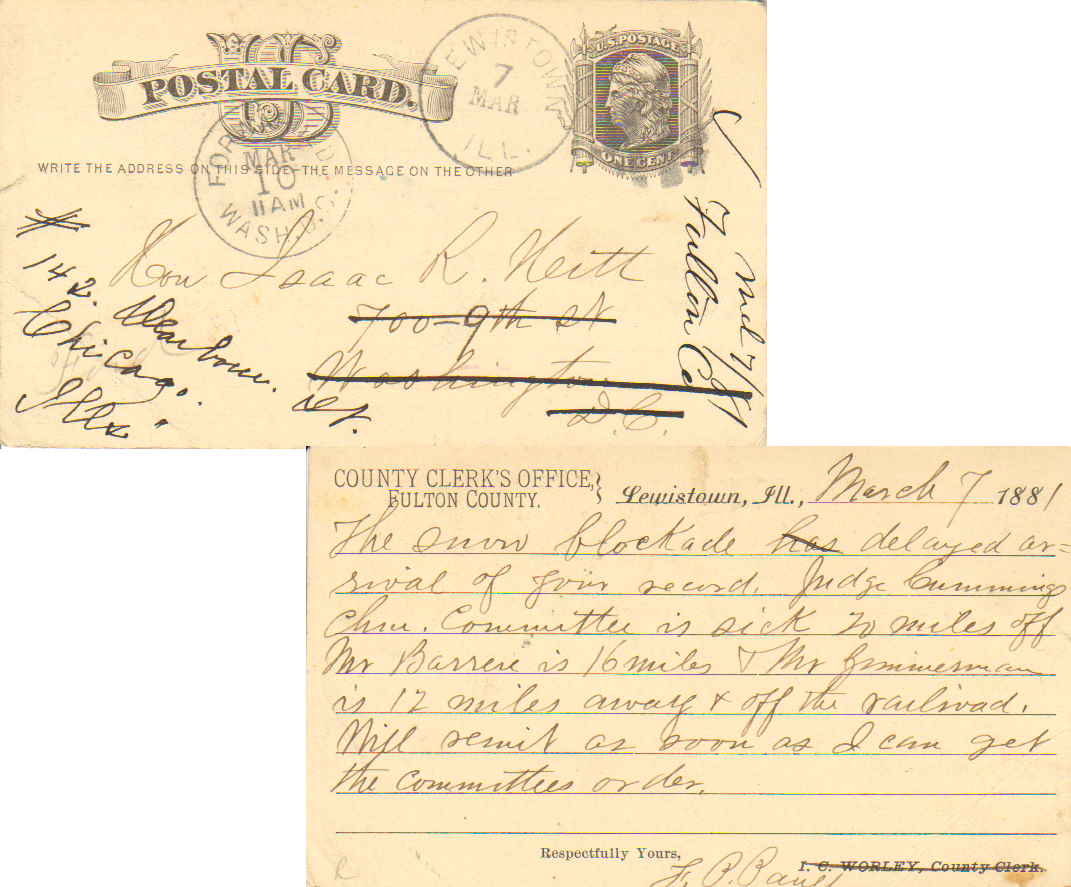 POSTAL CARD.
U.S. POSTAGE
ONE CENT
LEWISTOWN
7
MAR
ILL.
WRITE THE ADDRESS ON THIS SIDE-THE MESSAGE ON THE OTHER
MAR
10
11 AM
WASH. D.C.
Hon Isaac R. Hitt
700-9th St
Washington
D.C.
142. Dearborn. St.
Chicago.
Ills.
Fulton Co
COUNTY CLERK'S OFFICE,
FULTON COUNTY.
Lewistown, Ill., March 7 1881
The snow blockade has delayed ar=
rival of your record. Judge Cummings
Chm. Committee is sick 20 miles off
Mr Barrere is 16 miles & Mr Zimmerman
is 12 miles away & off the railroad.
Will remit as soon as I can get
the committees order.
Respectfully Yours,
I. C. WORLEY, County Clerk.
F. P.